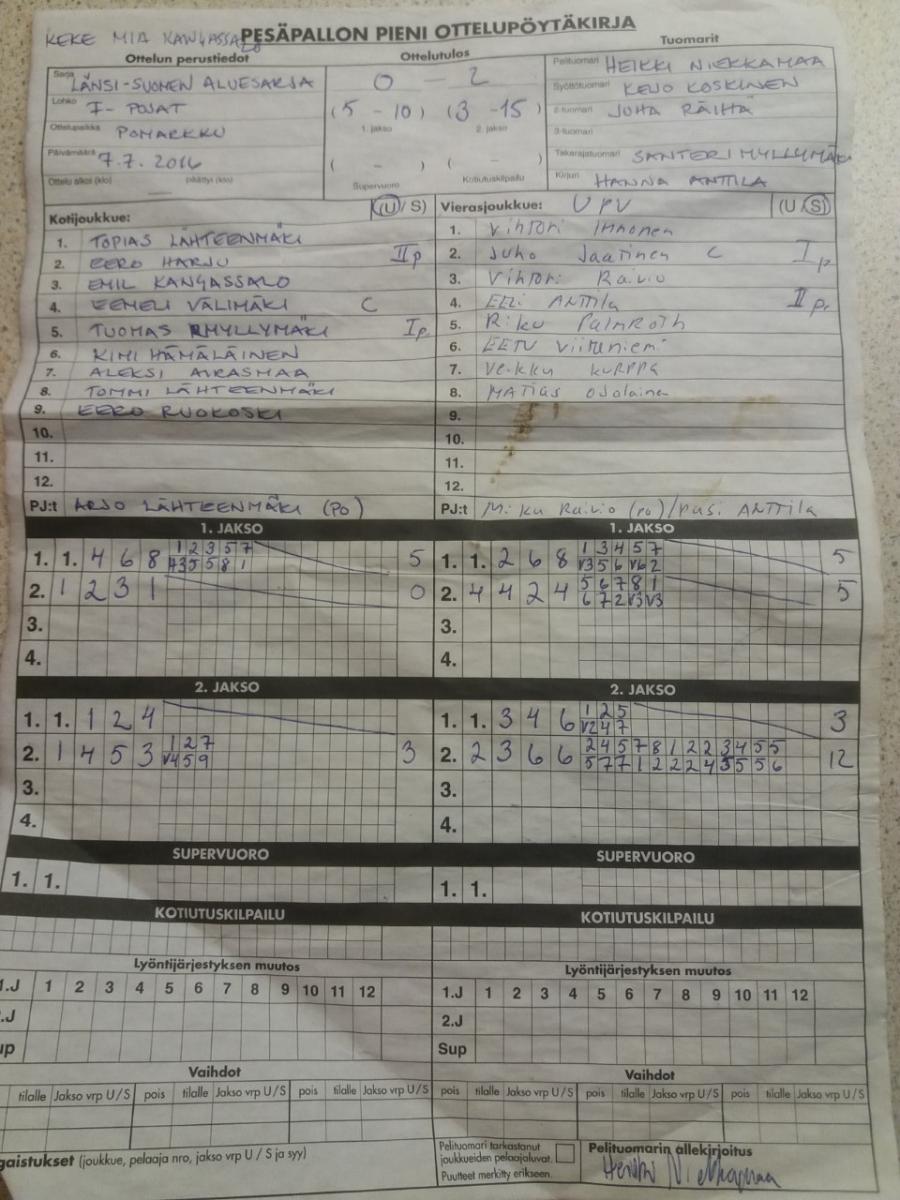 KEKE MIA KANGASSALO
PESÄPALLON PIENI OTTELUPÖYTÄKIRJA
Ottelun perustiedot
Sarja LÄNSI-SUOMEN ALUESARJA
Lohko F-POJAT
Ottelupaikka POMARKKU
Päivämäärä 7.7.2016
Ottelu alkoi (klo) päättyi (klo)
Ottelutulos
0 - 2
(5 - 10) (3 - 15)
1. jakso 2. jakso
( - ) ( - )
Supervuoro Kotiutuskilpailu
Tuomarit
Pelituomari HEIKKI NIEKKAMAA
Syöttötuomari KEIJO KOSKINEN
2-tuomari JUHA RÄIHÄ
3-tuomari
Takarajatuomari SANTERI MYLLYMÄKI
Kirjuri HANNA ANTTILA
Kotijoukkue: (U / S)
1. TOPIAS LÄHTEENMÄKI
2. EERO HARJU II p
3. EMIL KANGASSALO
4. EEMELI VÄLIMÄKI C
5. TUOMAS MYLLYMÄKI I p.
6. KIMI HÄMÄLÄINEN
7. ALEKSI AIRASMAA
8. TOMMI LÄHTEENMÄKI
9. EERO RUOKOSKI
10.
11.
12.
PJ:t ARJO LÄHTEENMÄKI (PO)
Vierasjoukkue: UPV (U / S)
1. Vihtori Immonen
2. Juho Jaatinen C I p
3. Vihtori Raivio
4. EELi ANTTila II p.
5. Riku PalmRoth
6. EETU Viitaniemi
7. Veikku KURPPA
8. MATIAS Ojalainen
9.
10.
11.
12.
PJ:t Miku Raivio (po) / Pasi ANTTila
1. JAKSO
1. 1. 4 6 8 1 2 3 5 7 5
5 5 8 1
2. 1 2 3 1 0
3.
4.
1. JAKSO
1. 1. 2 6 8 1 3 4 5 7 5
V3 5 6 V6 2
2. 4 4 2 4 5 6 7 8 1 5
6 7 2 V3 V3
3.
4.
2. JAKSO
1. 1. 1 2 4
2. 1 4 5 3 1 2 7 3
V4 5 9
3.
4.
2. JAKSO
1. 1. 3 4 6 1 2 5 3
V2 4 7
2. 2 3 6 6 2 4 5 7 8 1 2 2 3 4 5 5 12
5 7 7 1 2 2 2 4 5 5 5 6
3.
4.
SUPERVUORO
1. 1.
SUPERVUORO
1. 1.
KOTIUTUSKILPAILU
KOTIUTUSKILPAILU
Lyöntijärjestyksen muutos
1.J 1 2 3 4 5 6 7 8 9 10 11 12
.J
up
Lyöntijärjestyksen muutos
1.J 1 2 3 4 5 6 7 8 9 10 11 12
2.J
Sup
Vaihdot
tilalle Jakso vrp U/S pois tilalle Jakso vrp U/S pois tilalle Jakso vrp U/S
Vaihdot
pois tilalle Jakso vrp U/S pois tilalle Jakso vrp U/S pois tilalle Jakso vrp U/S
gaistukset (joukkue, pelaaja nro, jakso vrp U / S ja syy)
Pelituomari tarkastanut
joukkueiden pelaajaluvat.
Puutteet merkitty erikseen.
Pelituomarin allekirjoitus
Heikki Niekkamaa